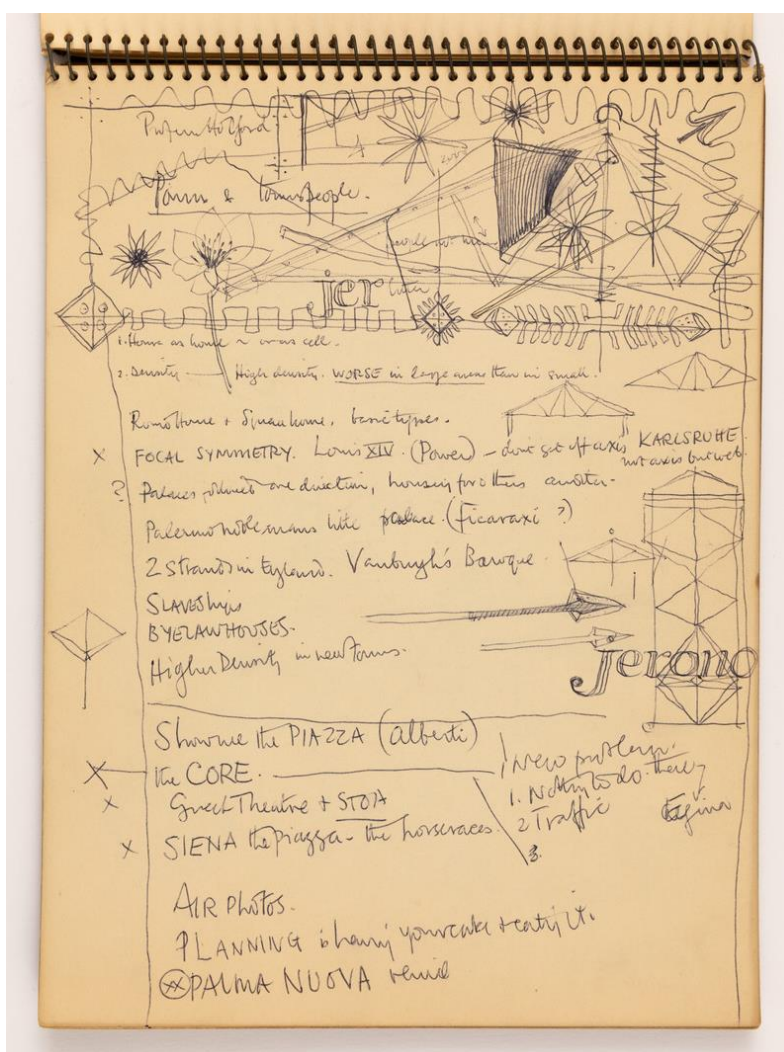 Holford
Towns & Townspeople.
jer
1. House as home ~ or as cell.
2. Density — High density. WORSE in large areas than in small.
House + Square home, basic types.
x FOCAL SYMMETRY. Louis XIV. (Power) – don't get off axis KARLSRUHE
not axis but web.
? Palaces one direction, housing for others another.
Palermo noblemans little palace. (Ficaraxi ?)
2 Strands in England. Vanburgh's Baroque.
SLAVESHIPS
BYELAWHOUSES.
Higher Density in new Towns.
Jerono
Show me the PIAZZA (Alberti)
x the CORE.
x Greek Theatre + STOA
x SIENA the piazza – the horseraces.
New problem.
1. Nothing to do there
2 Traffic
3.
Egina
AIR PHOTOS.
PLANNING is having your cake + eating it.
xx PALMA NUOVA